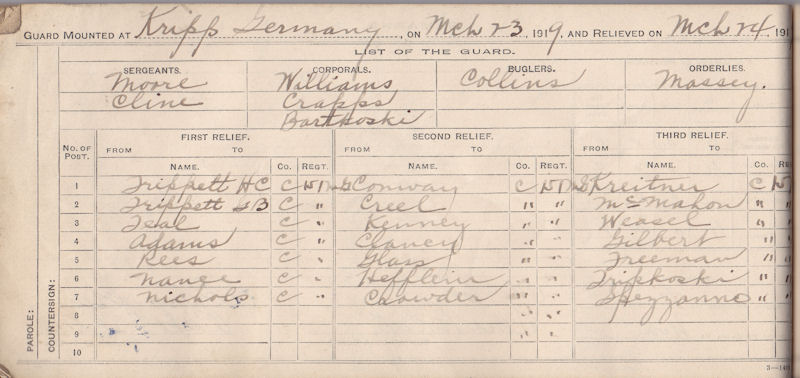 GUARD MOUNTED AT Kripp Germany, ON Mch 23, 1919, AND RELIEVED ON Mch 24, 191
LIST OF THE GUARD.
SERGEANTS. CORPORALS. BUGLERS. ORDERLIES.
Moore Williams Collins Massey.
Cline Crapps
Bartkoski
No. of Post. FIRST RELIEF. SECOND RELIEF. THIRD RELIEF.
FROM TO FROM TO FROM TO
NAME. Co. REGT. NAME. Co. REGT. NAME. Co. RE
1 Trippett H C C Conway C Kreitner C
2 Trippett G B C " Creel " " McMahon "
3 Teal C " Kenney " " Weasel "
4 Adams C " Clancy " " Gilbert "
5 Rees C " Glass " " Freeman "
6 Nance C " Hefflein " " Tripkoski "
7 Nichols C " Chowder " " Spezzanno "
8 " "
9 " "
10
PAROLE:
COUNTERSIGN: